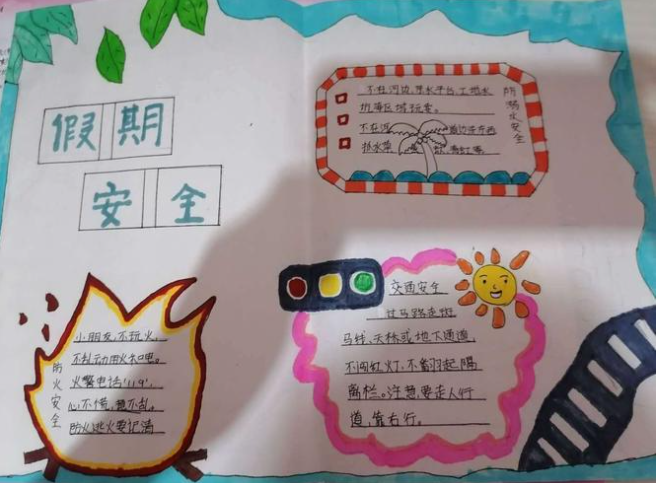 假期
安全
不在河边、亲水平台、工地水
坑等区域玩耍。
不在河
边洗手东西
防溺水安全
小朋友,不玩火,
不乱动用火和电。
火警电话"119",
心不慌,意不乱。
防火逃火要记清
防火安全
交通安全
过马路走斑
马线、天桥或地下通道,
不闯红灯,不翻越隔
离栏。注意,要走人行
道,靠右行。